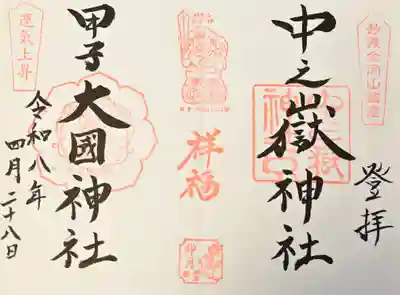 登拝
中之嶽神社
祥福
甲子大國神社
運気上昇
令和八年
四月二十八日